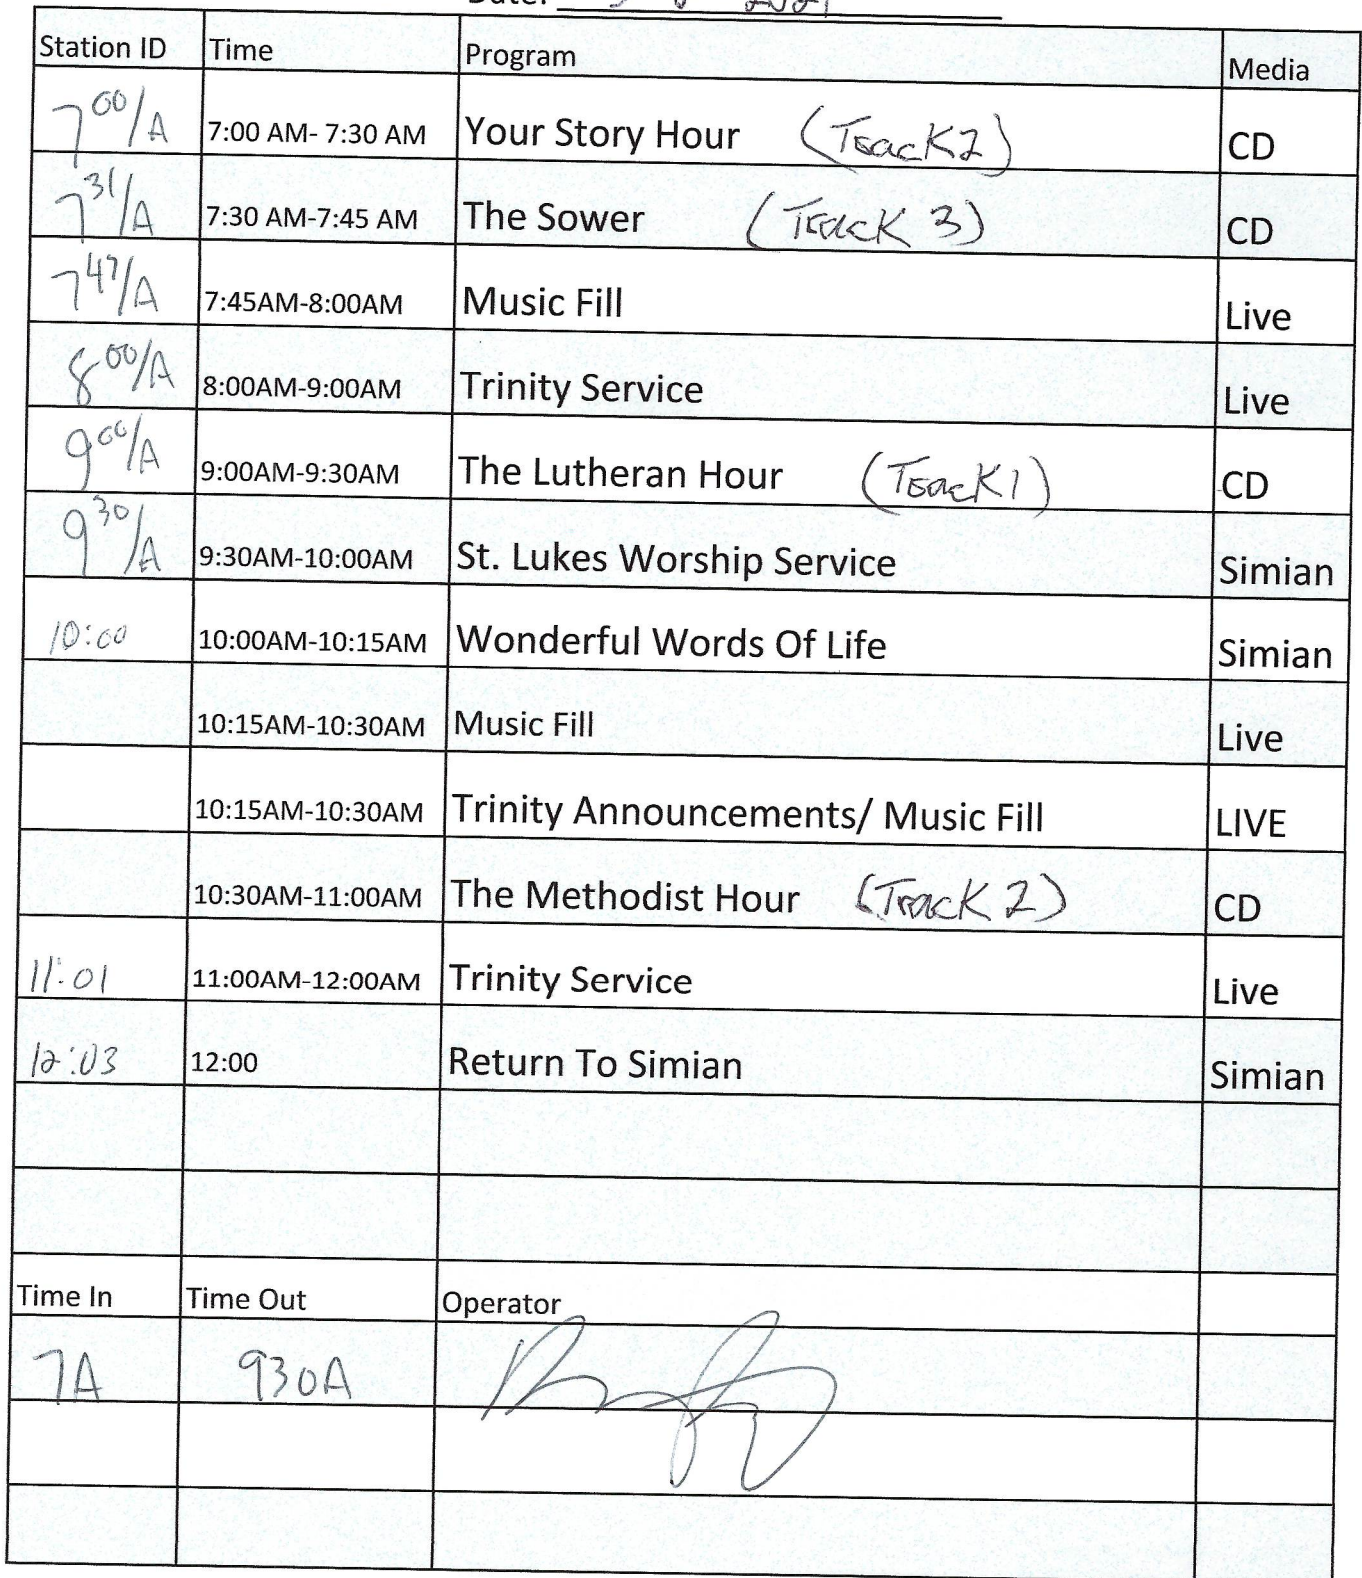 Date: 2021
Station ID Time Program Media
7 00/A 7:00 AM- 7:30 AM Your Story Hour (Track 2) CD
7 31/A 7:30 AM-7:45 AM The Sower (Track 3) CD
7 47/A 7:45AM-8:00AM Music Fill Live
8 00/A 8:00AM-9:00AM Trinity Service Live
9 00/A 9:00AM-9:30AM The Lutheran Hour (Track 1) CD
9 30/A 9:30AM-10:00AM St. Lukes Worship Service Simian
10:00 10:00AM-10:15AM Wonderful Words Of Life Simian
10:15AM-10:30AM Music Fill Live
10:15AM-10:30AM Trinity Announcements/ Music Fill LIVE
10:30AM-11:00AM The Methodist Hour (Track 2) CD
11:01 11:00AM-12:00AM Trinity Service Live
12:03 12:00 Return To Simian Simian
Time In Time Out Operator
7A 930A